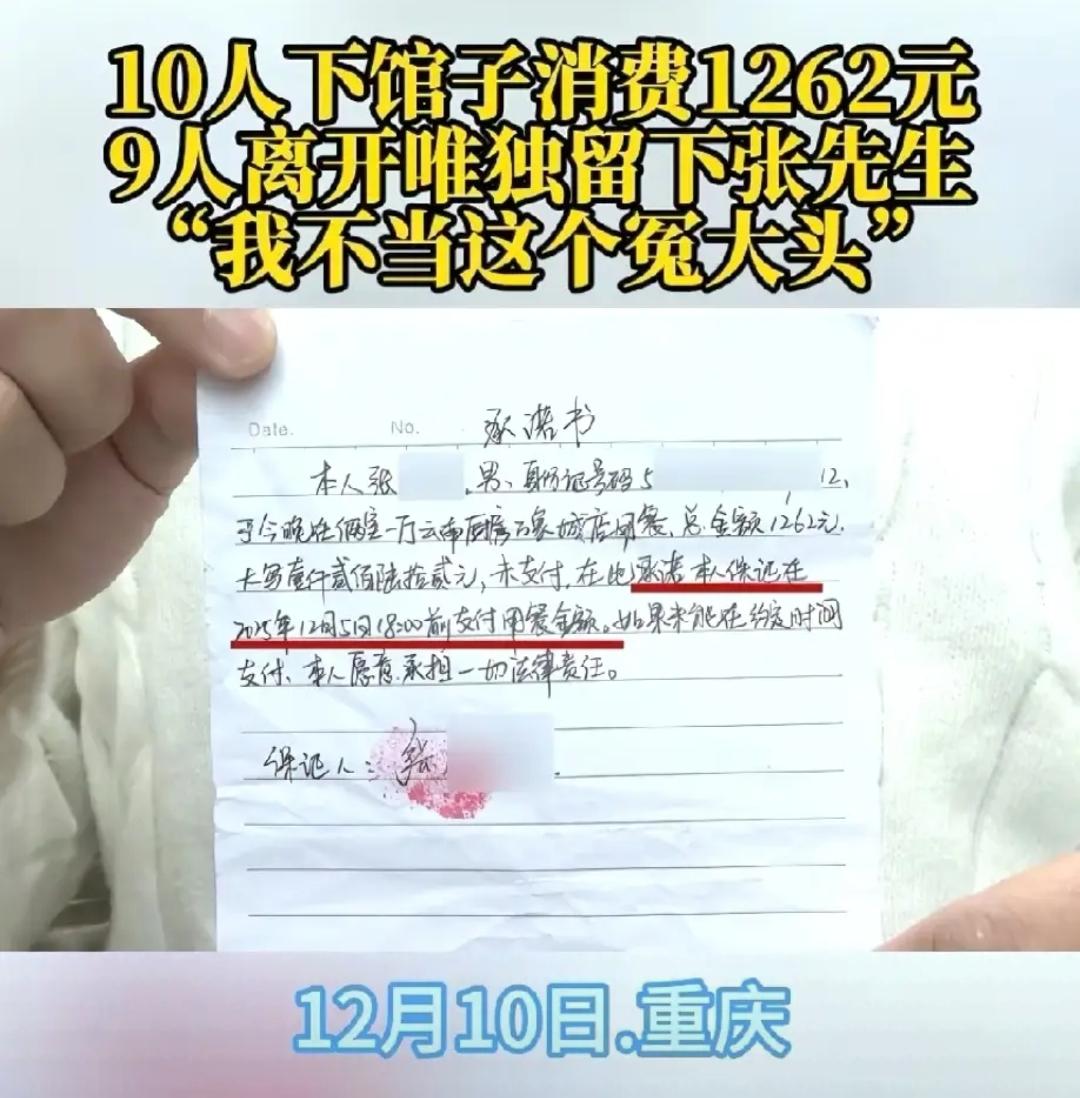 10人下馆子消费1262元
9人离开唯独留下张先生
“我不当这个冤大头”
Date. No. 承诺书
本人张 ,男、身份证号码5 12,
于今晚在俩室一厅云南厨房万象城店用餐,总金额1262元,
大写壹仟贰佰陆拾贰元,未支付,在此承诺本人保证在
2025年12月5日18:00前支付用餐金额。如果未能在约定时间
支付、本人愿意承担一切法律责任。
保证人:张
12月10日.重庆